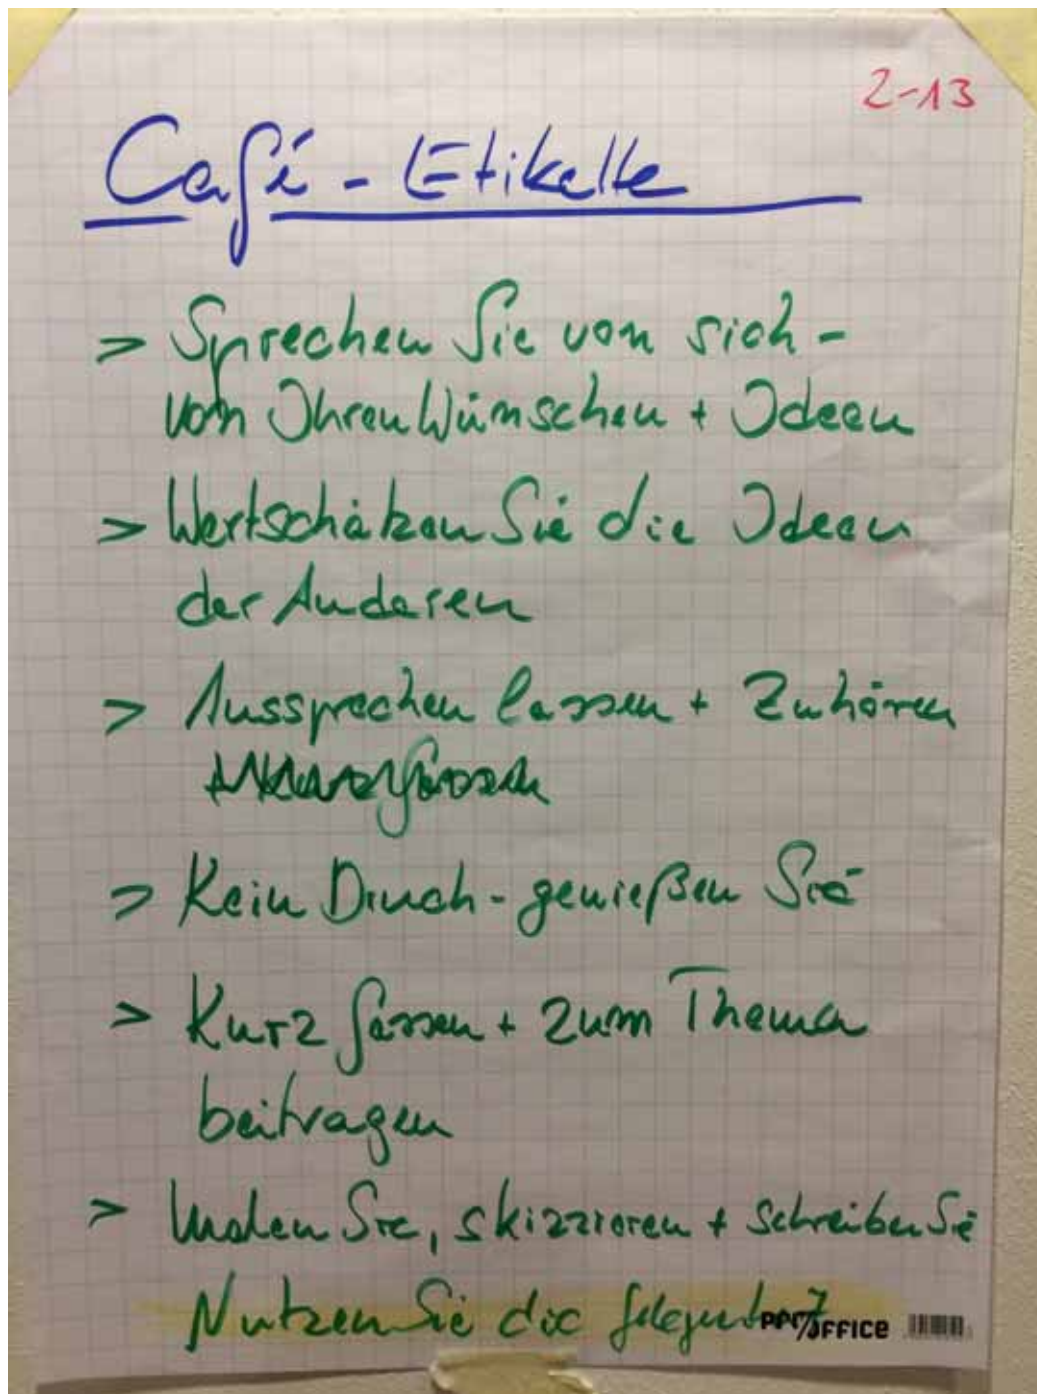 2-13
Café - Etikette
> Sprechen Sie von sich -
von Ihren Wünschen + Ideen
> Wertschätzen Sie die Ideen
der Anderen
> Aussprechen lassen + Zuhören
> Kein Druck - genießen Sie
> Kurz fassen + zum Thema
beitragen
> Malen Sie, skizzieren + schreiben Sie
Nutzen Sie die Gelegenheit
OFFICE